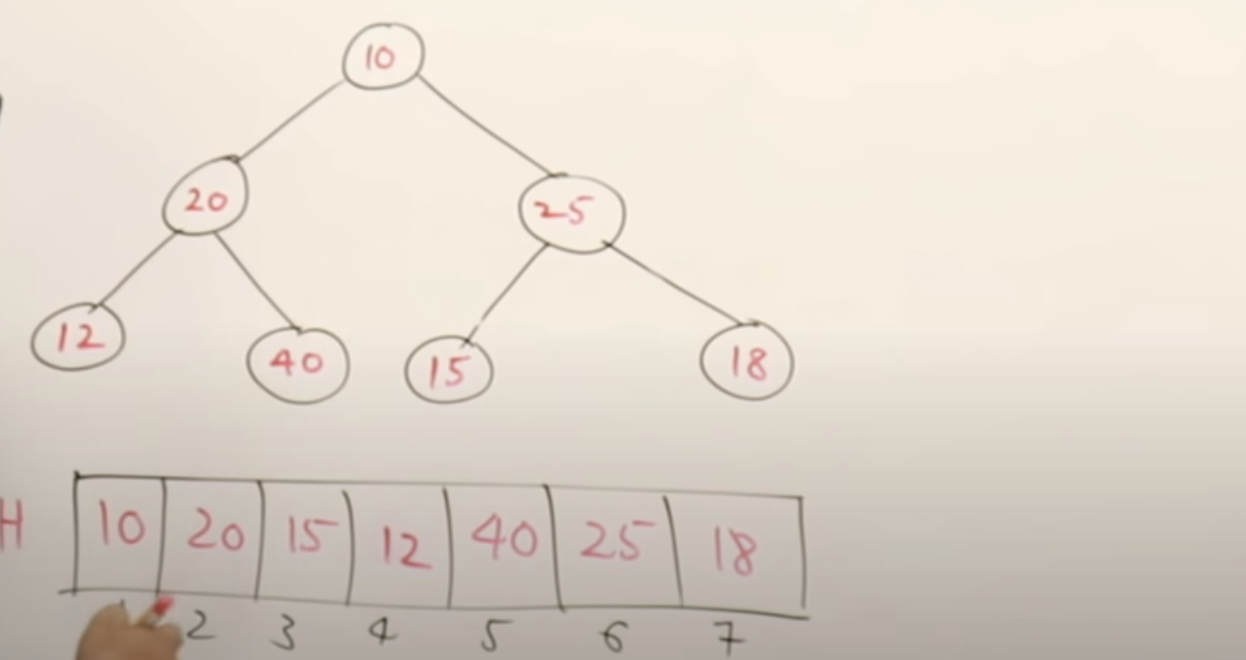 10
20 25
12 40 15 18
H 10 20 15 12 40 25 18
2 3 4 5 6 7